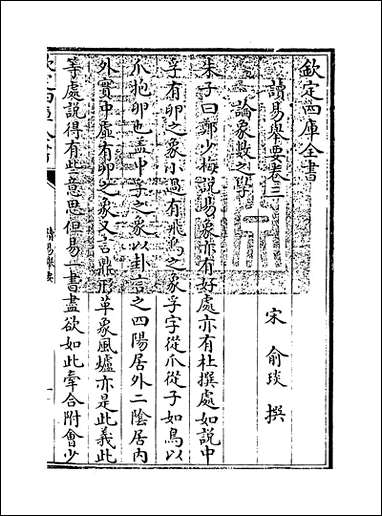 欽定四庫全書
讀易舉要卷三
宋 俞琰 撰
論象數之學
朱子曰鄭少梅説易象亦有好處亦有杜撰處如説中
孚有卵之象小過有飛鳥之象孚字從爪從子如鳥以
爪抱卵也蓋中孚之象以卦言之四陽居外二陰居内
外實中虛有卵之象又言鼎形革象風爐亦是此義此
等處説得有此意思但易一書盡欲如此牽合附會少
欽定四庫全書
讀易舉要
一